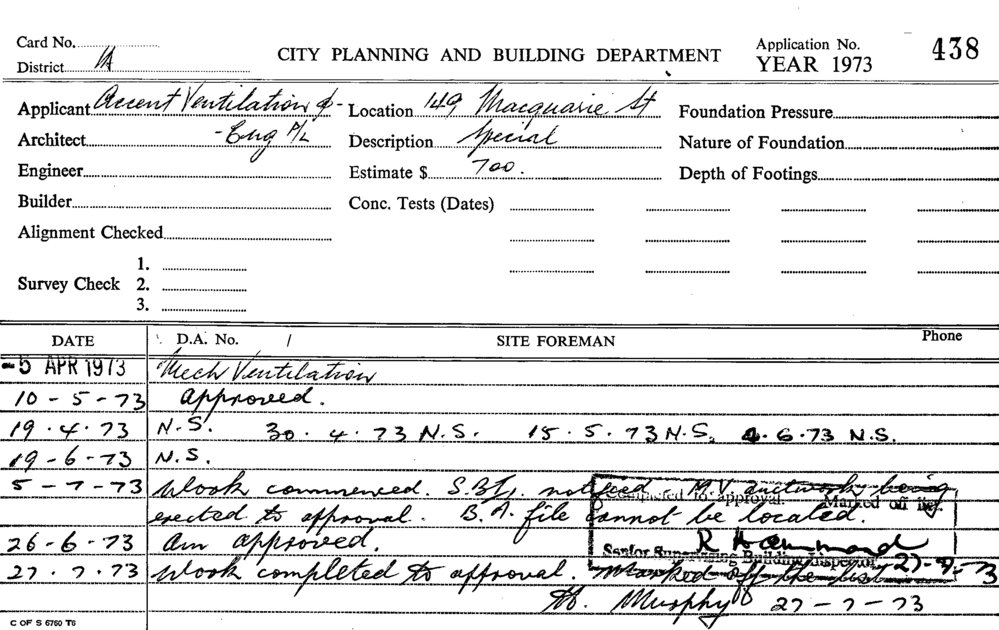 Card No.
District 1A
CITY PLANNING AND BUILDING DEPARTMENT
Application No. 438
YEAR 1973
Applicant Accent Ventilation &-
Location 149 Macquarie St
Foundation Pressure
Architect -Eng P/L
Description Special
Nature of Foundation
Engineer
Estimate $ 700.
Depth of Footings
Builder
Conc. Tests (Dates)
Alignment Checked
Survey Check 1.
2.
3.
DATE D.A. No. / SITE FOREMAN Phone
-5 APR 1973 Mech Ventilation
10-5-73 approved.
19.4.73 N.S. 30.4.73 N.S. 15.5.73 N.S. 4.6.73 N.S.
19-6-73 N.S.
5-7-73 Work commenced. notified M.V. ductwork being
erected to approval. B.A. file cannot be located.
26-6-73 Am approved.
27.7.73 Work completed to approval. Marked off the list
H. Murphy 27-7-73
Completed to approval. Marked off list.
R Hammond
Senior Supervising Building Inspector 27-7-73
C OF S 6760 T6